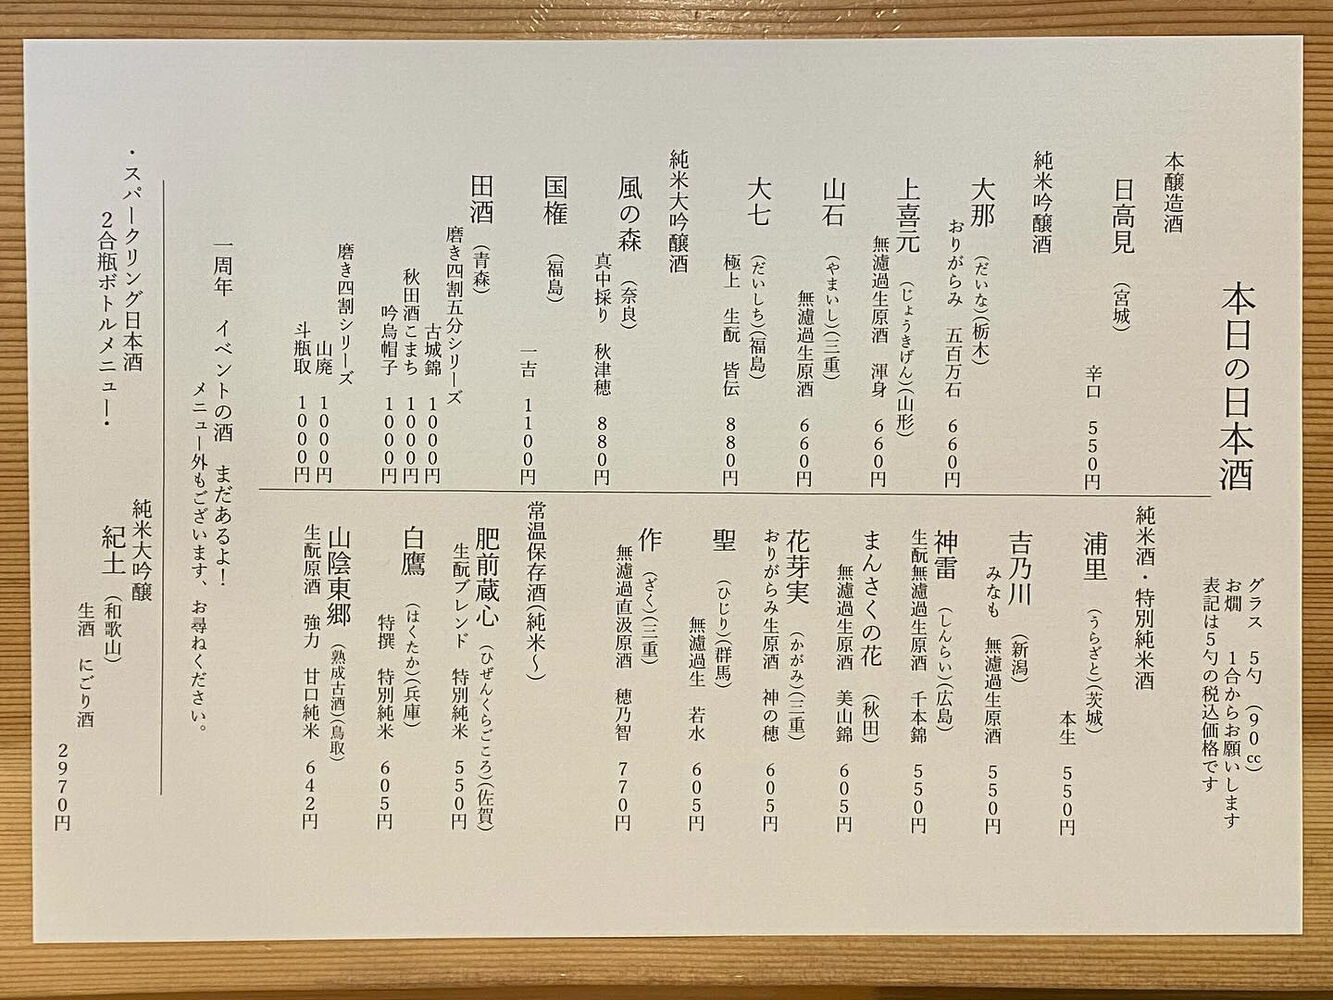 本日の日本酒
グラス　5勺　(90cc)
お燗　1合からお願いします
表記は5勺の税込価格です
本醸造酒
日高見　(宮城)
辛口　550円
純米吟醸酒
大那　(だいな)(栃木)
おりがらみ　五百万石　660円
上喜元　(じょうきげん)(山形)
無濾過生原酒　渾身　660円
山石　(やまいし)(三重)
無濾過生原酒　660円
大七　(だいしち)(福島)
極上　生酛　皆伝　880円
純米大吟醸酒
風の森　(奈良)
真中採り　秋津穂　880円
国権　(福島)
一吉　1100円
田酒　(青森)
磨き四割五分シリーズ
古城錦　1000円
秋田酒こまち　1000円
吟烏帽子　1000円
磨き四割シリーズ
山廃　1000円
斗瓶取　1000円
純米酒・特別純米酒
浦里　(うらざと)(茨城)
本生　550円
吉乃川　(新潟)
みなも　無濾過生原酒　550円
神雷　(しんらい)(広島)
生酛無濾過生原酒　千本錦　550円
まんさくの花　(秋田)
無濾過生原酒　美山錦　605円
花芽実　(かがみ)(三重)
おりがらみ生原酒　神の穂　605円
聖　(ひじり)(群馬)
無濾過生　若水　605円
作　(ざく)(三重)
無濾過直汲原酒　穂乃智　770円
常温保存酒(純米〜)
肥前蔵心　(ひぜんくらごころ)(佐賀)
生酛ブレンド　特別純米　550円
白鷹　(はくたか)(兵庫)
特撰　特別純米　605円
山陰東郷　(熟成古酒)(鳥取)
生酛原酒　強力　甘口純米　642円
一周年　イベントの酒　まだあるよ！
メニュー外もございます、お尋ねください。
・スパークリング日本酒
2合瓶ボトルメニュー・
純米大吟醸
紀土　(和歌山)
生酒　にごり酒　2970円